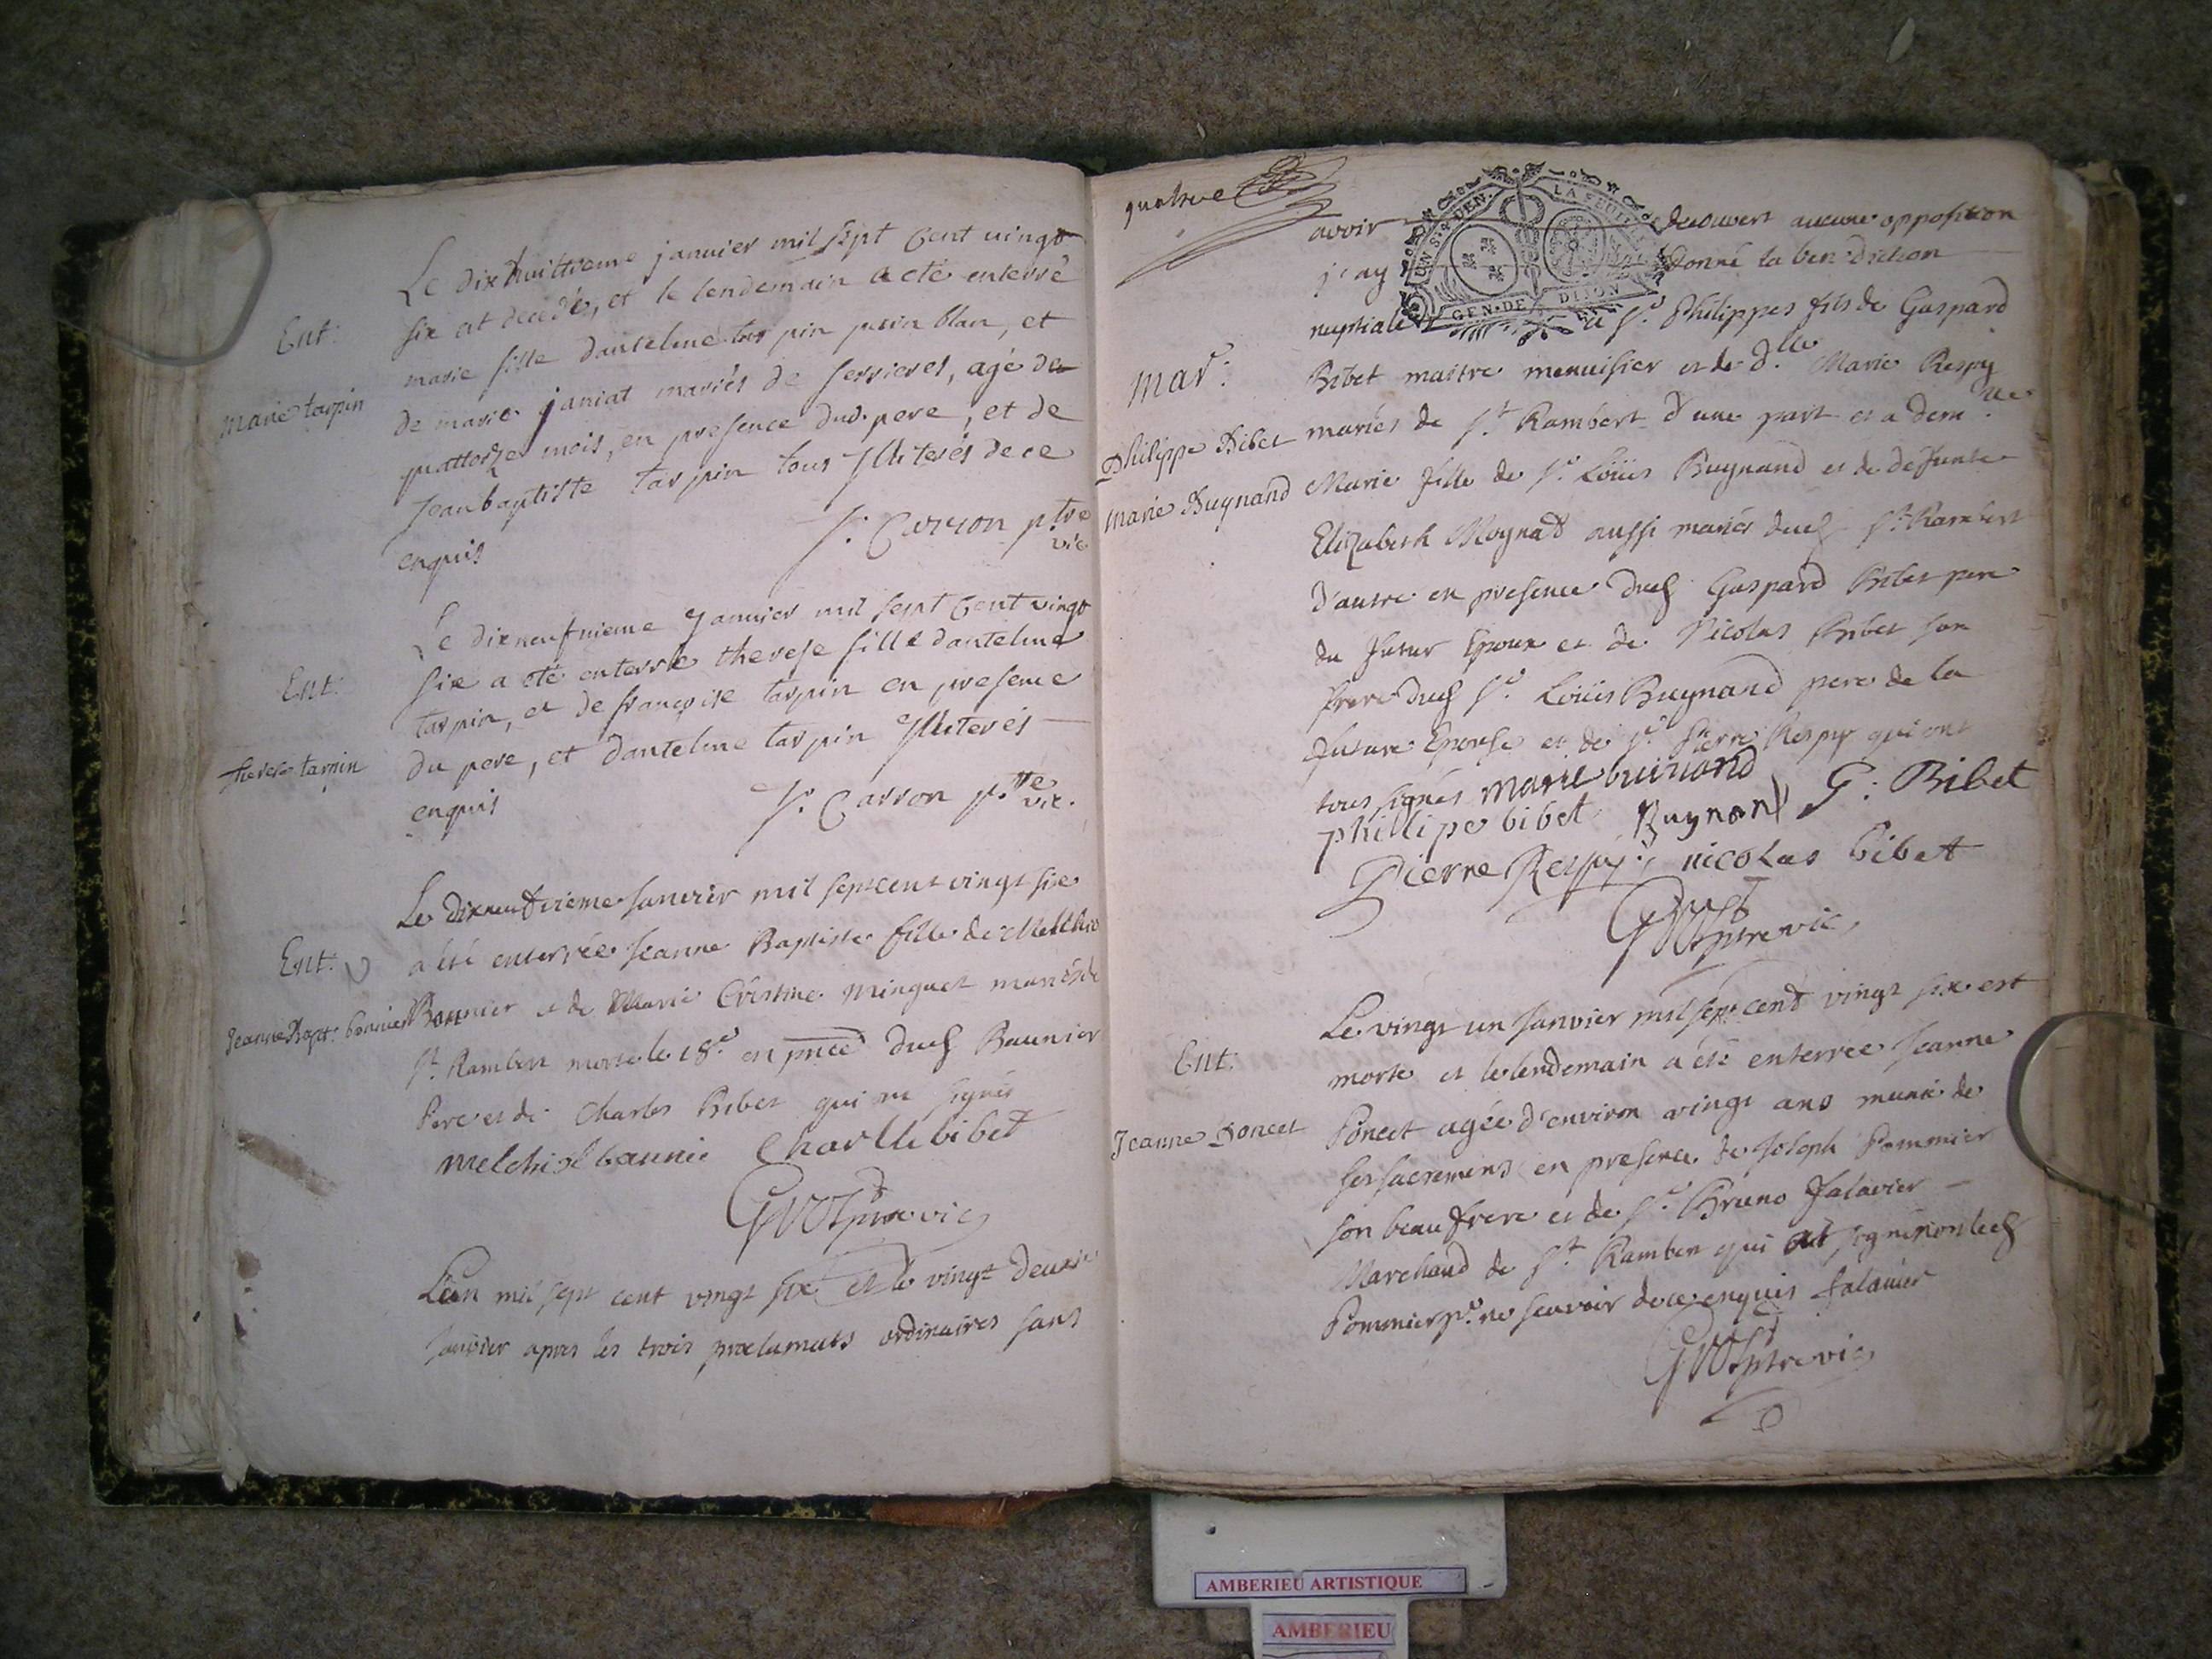 Le dix huittieme janvier mil sept cent vingt
six est decedé, et le lendemain a eté enterré
Ent:
marie fille dantelme tarpin perin blan, et
marie tarpin
de marie janiat mariés de serrieres, agé de
quattorze mois, en presence dud. pere, et de
Jean baptiste tarpin tous illiterés de ce
enquis
S. Carron ptre
vic
Le dixneufvieme Janvier mil sept cent vingt
six a eté enterrée therese fille dantelme
Ent:
tarpin, et de françoise tarpin en presence
du pere, et dantelme tarpin illiterés
therese tarpin
enquis
S. Carron ptre
vic.
Le dixneufvieme Janvier mil sept cent vingt six
a été enterrée Jeanne Baptiste fille de Melchio
Ent:
Jeanne Bapt. bonnier
Baunier et de Marie Cristine Minguet mariés de
St. Rambert morte le 18e. en pnce dud Baunier
Pere et de Charles Bibet qui ont signés
melchiol baunie Charlle bibet
ptre vic
L'an mil sept cent vingt six et le vingt deux
Janvier apres les trois proclamats ordinaires sans
quatre
avoir decouvert aucune opposition
j'ay donné la benediction
nuptiale a Sr. Philippes fils de Gaspard
mar:
Bibet maitre menuisier et de dlle. Marie Respy
Philippe Bibet
mariés de St. Rambert d'une part et a dem lle
marie Buynand
Marie fille de Sr. Loüis Buynand et de defunte
Elizabeth Mognat aussi mariés dud St. Rambert
d'autre en presence dud Gaspard Bibet pere
du futur Epoux et de Nicolas Bibet son
frere dud Sr. Loüis Buynand pere de la
future Epouse et de Sr. Pierre Respy qui ont
tous signés marie buinand
phillipe bibet Buynand G: Bibet
Pierre Respy nicolas bibet
ptre vic
Le vingt un Janvier mil sept cent vingt six est
morte et le lendemain a été enterrée Jeanne
Ent:
Jeanne Poncet
Poncet agée d'environ vingt ans munie de
ses sacremens en presence de Joseph Pommier
son beaufrere et de Sr. Bruno falavier
Marchand de St. Rambert qui a signé non led
Pommier pr. ne scavoir de ce enquis falavier
ptre vic
UN S. 4 DEN. LA FEUILLE
GEN. DE DIJON
AMBERIEU ARTISTIQUE
AMBERIEU